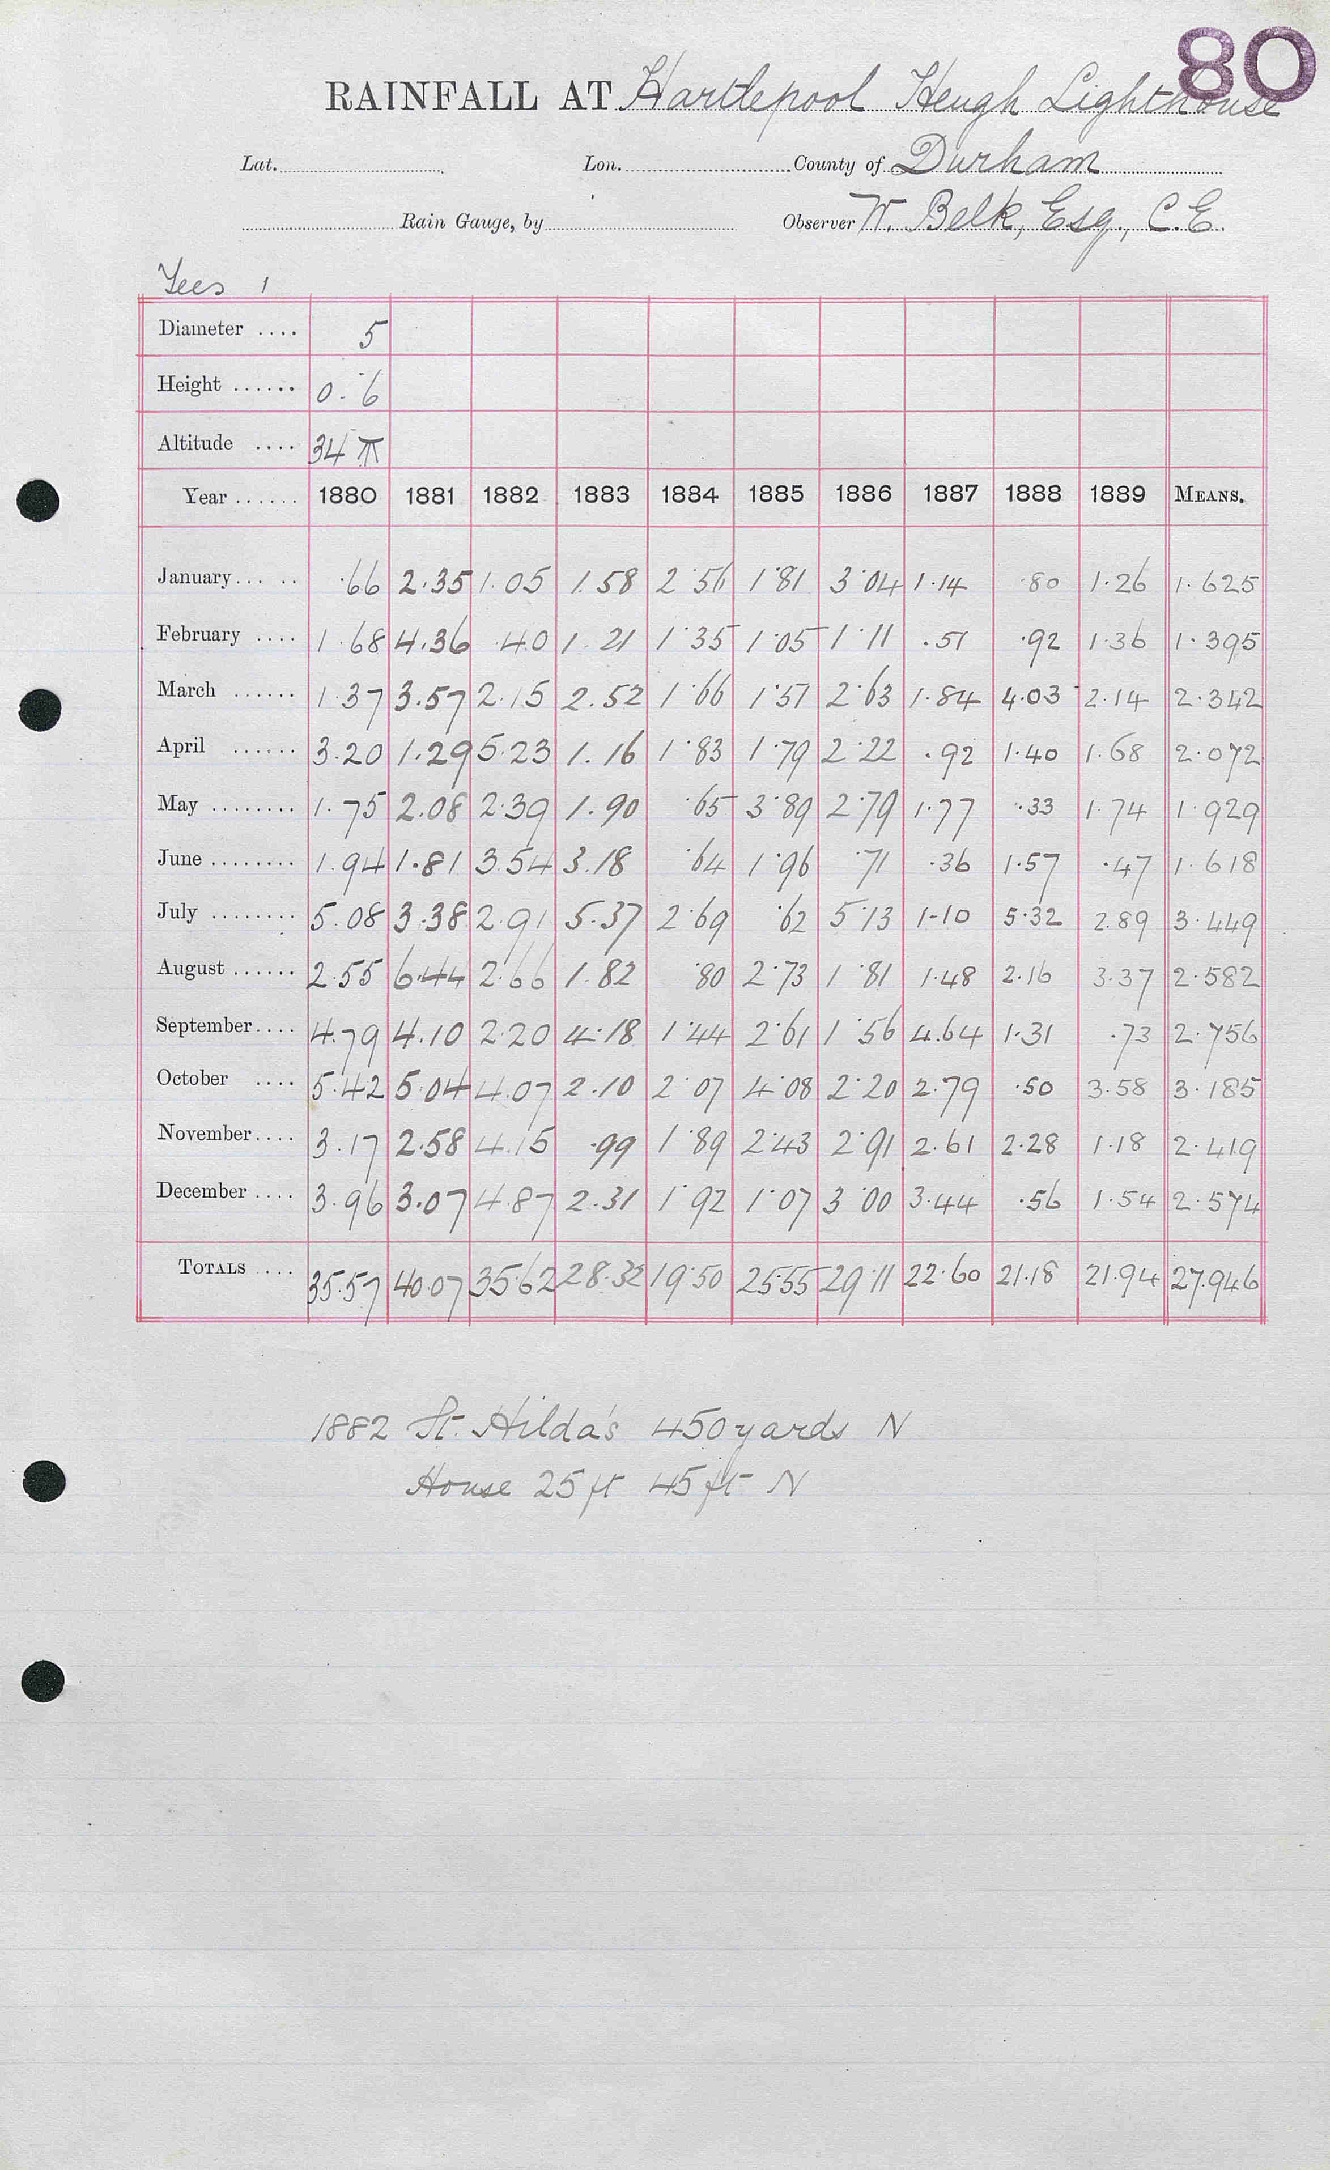 80
RAINFALL AT Hartlepool Heugh Lighthouse
Lat. Lon. County of Durham
Rain Gauge, by Observer W. Belk, Esq., C.E.
Tees 1
Diameter .... 5
Height ...... 0.6
Altitude .... 34 T
Year ...... 1880 1881 1882 1883 1884 1885 1886 1887 1888 1889 MEANS.
January... .. .66 2.35 1.05 1.58 2.56 1.81 3.04 1.14 .80 1.26 1.625
February .... 1.68 4.36 .40 1.21 1.35 1.05 1.11 .51 .92 1.36 1.395
March ...... 1.37 3.57 2.15 2.52 1.66 1.51 2.63 1.84 4.03 2.14 2.342
April ...... 3.20 1.29 5.23 1.16 1.83 1.79 2.22 .92 1.40 1.68 2.072
May ........ 1.75 2.08 2.39 1.90 .65 3.89 2.79 1.77 .33 1.74 1.929
June ........ 1.94 1.81 3.54 3.18 .64 1.96 .71 .36 1.57 .47 1.618
July ........ 5.08 3.38 2.91 5.37 2.69 .62 5.13 1.10 5.32 2.89 3.449
August ...... 2.55 6.44 2.66 1.82 .80 2.73 1.81 1.48 2.16 3.37 2.582
September.... 4.79 4.10 2.20 4.18 1.44 2.61 1.56 4.64 1.31 .73 2.756
October .... 5.42 5.04 4.07 2.10 2.07 4.08 2.20 2.79 .50 3.58 3.185
November.... 3.17 2.58 4.15 .99 1.89 2.43 2.91 2.61 2.28 1.18 2.419
December .... 3.96 3.07 4.87 2.31 1.92 1.07 3.00 3.44 .56 1.54 2.574
TOTALS .... 35.57 40.07 35.62 28.32 19.50 25.55 29.11 22.60 21.18 21.94 27.946
1882 St. Hilda's 450 yards N
House 25 ft 45 ft N